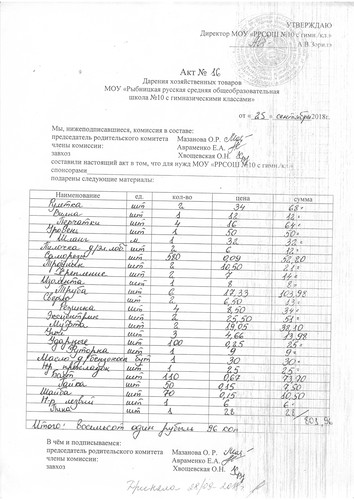 УТВЕРЖДАЮ
Директор МОУ «РРСОШ №10 с гимн./кл.»
А.В.Зорил
Акт № 16
Дарения хозяйственных товаров
МОУ «Рыбницкая русская средняя общеобразовательная
школа №10 с гимназическими классами»
от « 25 » сентября 2018г.
Мы, нижеподписавшиеся, комиссия в составе:
председатель родительского комитета Мазанова О.Р.
члены комиссии: Авраменко Е.А.
завхоз Хвощевская О.Н.
составили настоящий акт в том, что для нужд МОУ «РРСОШ №10 с гимн./кл.»
спонсорами
подарены следующие материалы:
Наименование ед. кол-во цена сумма
шт 2 34 68=
шт 1 12 12=
Перчатки шт 4 16 64=
Уровень шт 1 50 50=
Шланг м 1 32 32=
шт 2 6 12=
Саморезы шт 580 0,09 52,20
Тройник шт 2 10,50 21=
Крепление шт 2 7 14=
Изолента шт 1 8 8=
Труба шт 6 17,33 103,98
Сверло шт 2 6,50 13=
шт 4 8,50 34=
шт 2 25,50 51=
Муфта шт 2 19,05 38,10
шт 3 4,66 13,98
шт 100 0,25 25=
шт 1 9 9=
Масло 1 30 30=
шт 1 25 25=
Болт шт 110 0,67 73,70
Гайка шт 50 0,15 7,50
Шайба шт 70 0,15 10,50
шт 1 6 6=
шт 1 28 28=
801,96
Итого: восемьсот один рубль 96 коп
В чём и подписываемся:
председатель родительского комитета Мазанова О.Р.
члены комиссии: Авраменко Е.А.
завхоз Хвощевская О.Н.